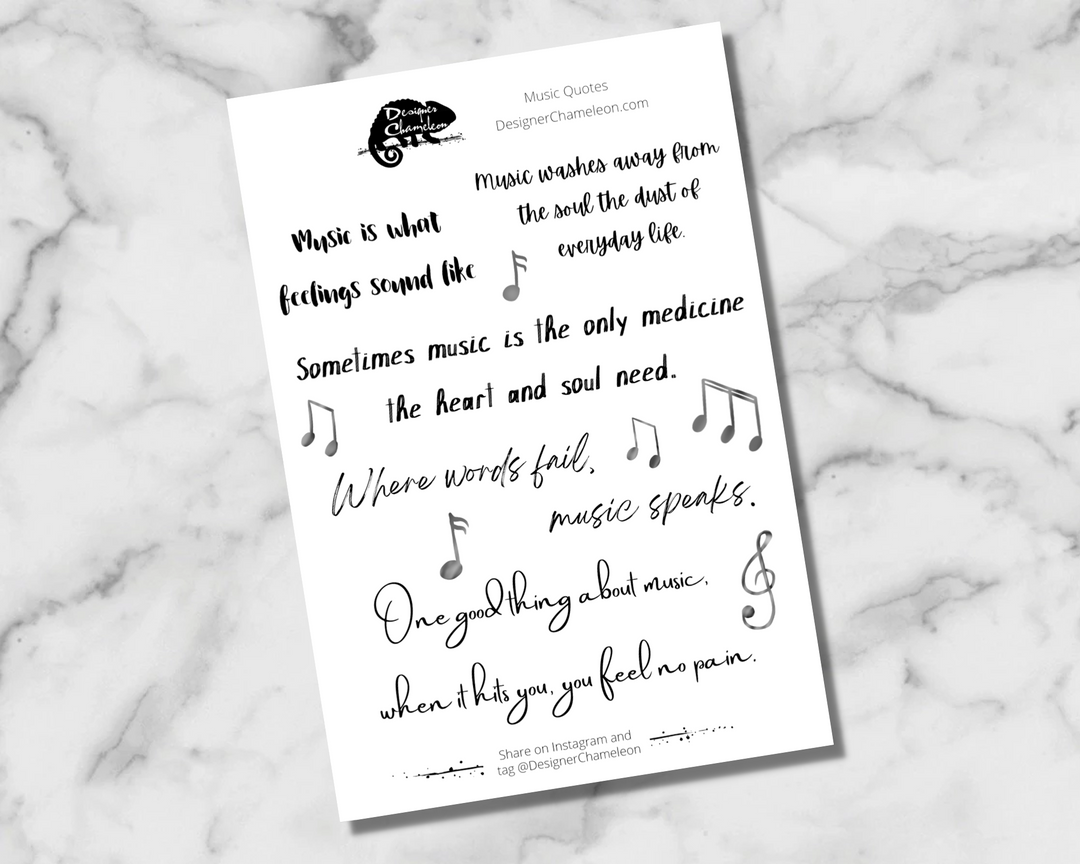 Designer
Chameleon
Music Quotes
DesignerChameleon.com
Music washes away from
the soul the dust of
everyday life.
Music is what
feelings sound like
Sometimes music is the only medicine
the heart and soul need.
Where words fail,
music speaks.
One good thing about music,
when it hits you, you feel no pain.
Share on Instagram and
tag @DesignerChameleon